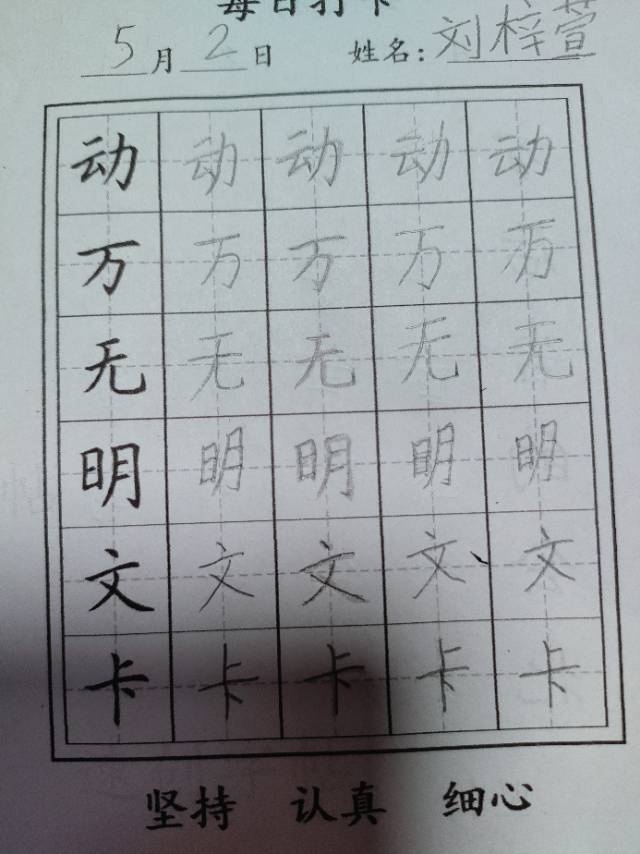 每日打卡
5月2日 姓名：刘梓萱
动 动 动 动 动
万 万 万 万 万
无 无 无 无 无
明 明 明 明 明
文 文 文 文 文
卡 卡 卡 卡 卡
坚持 认真 细心